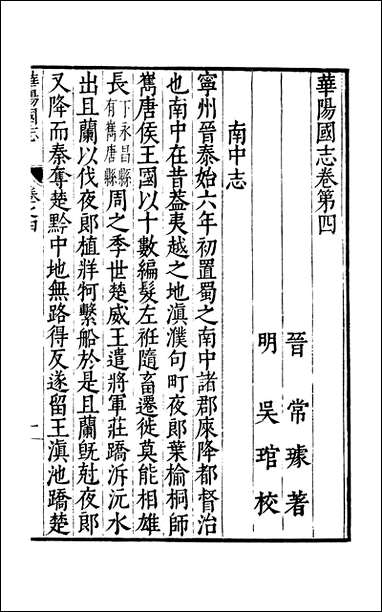 華陽國志卷第四
晉 常璩著
明 吳琯校
南中志
寧州晉泰始六年初置蜀之南中諸郡庲降都督治
也南中在昔葢夷越之地滇濮句町夜郎葉榆桐師
嶲唐侯王國以十數編髮左袵隨畜遷徙莫能相雄
長下永昌縣有嶲唐縣周之季世楚威王遣將軍莊蹻泝沅水
出且蘭以伐夜郎植牂牁繫船於是且蘭旣尅夜郎
又降而秦奪楚黔中地無路得反遂留王滇池蹻楚
華陽國志
卷之四
一